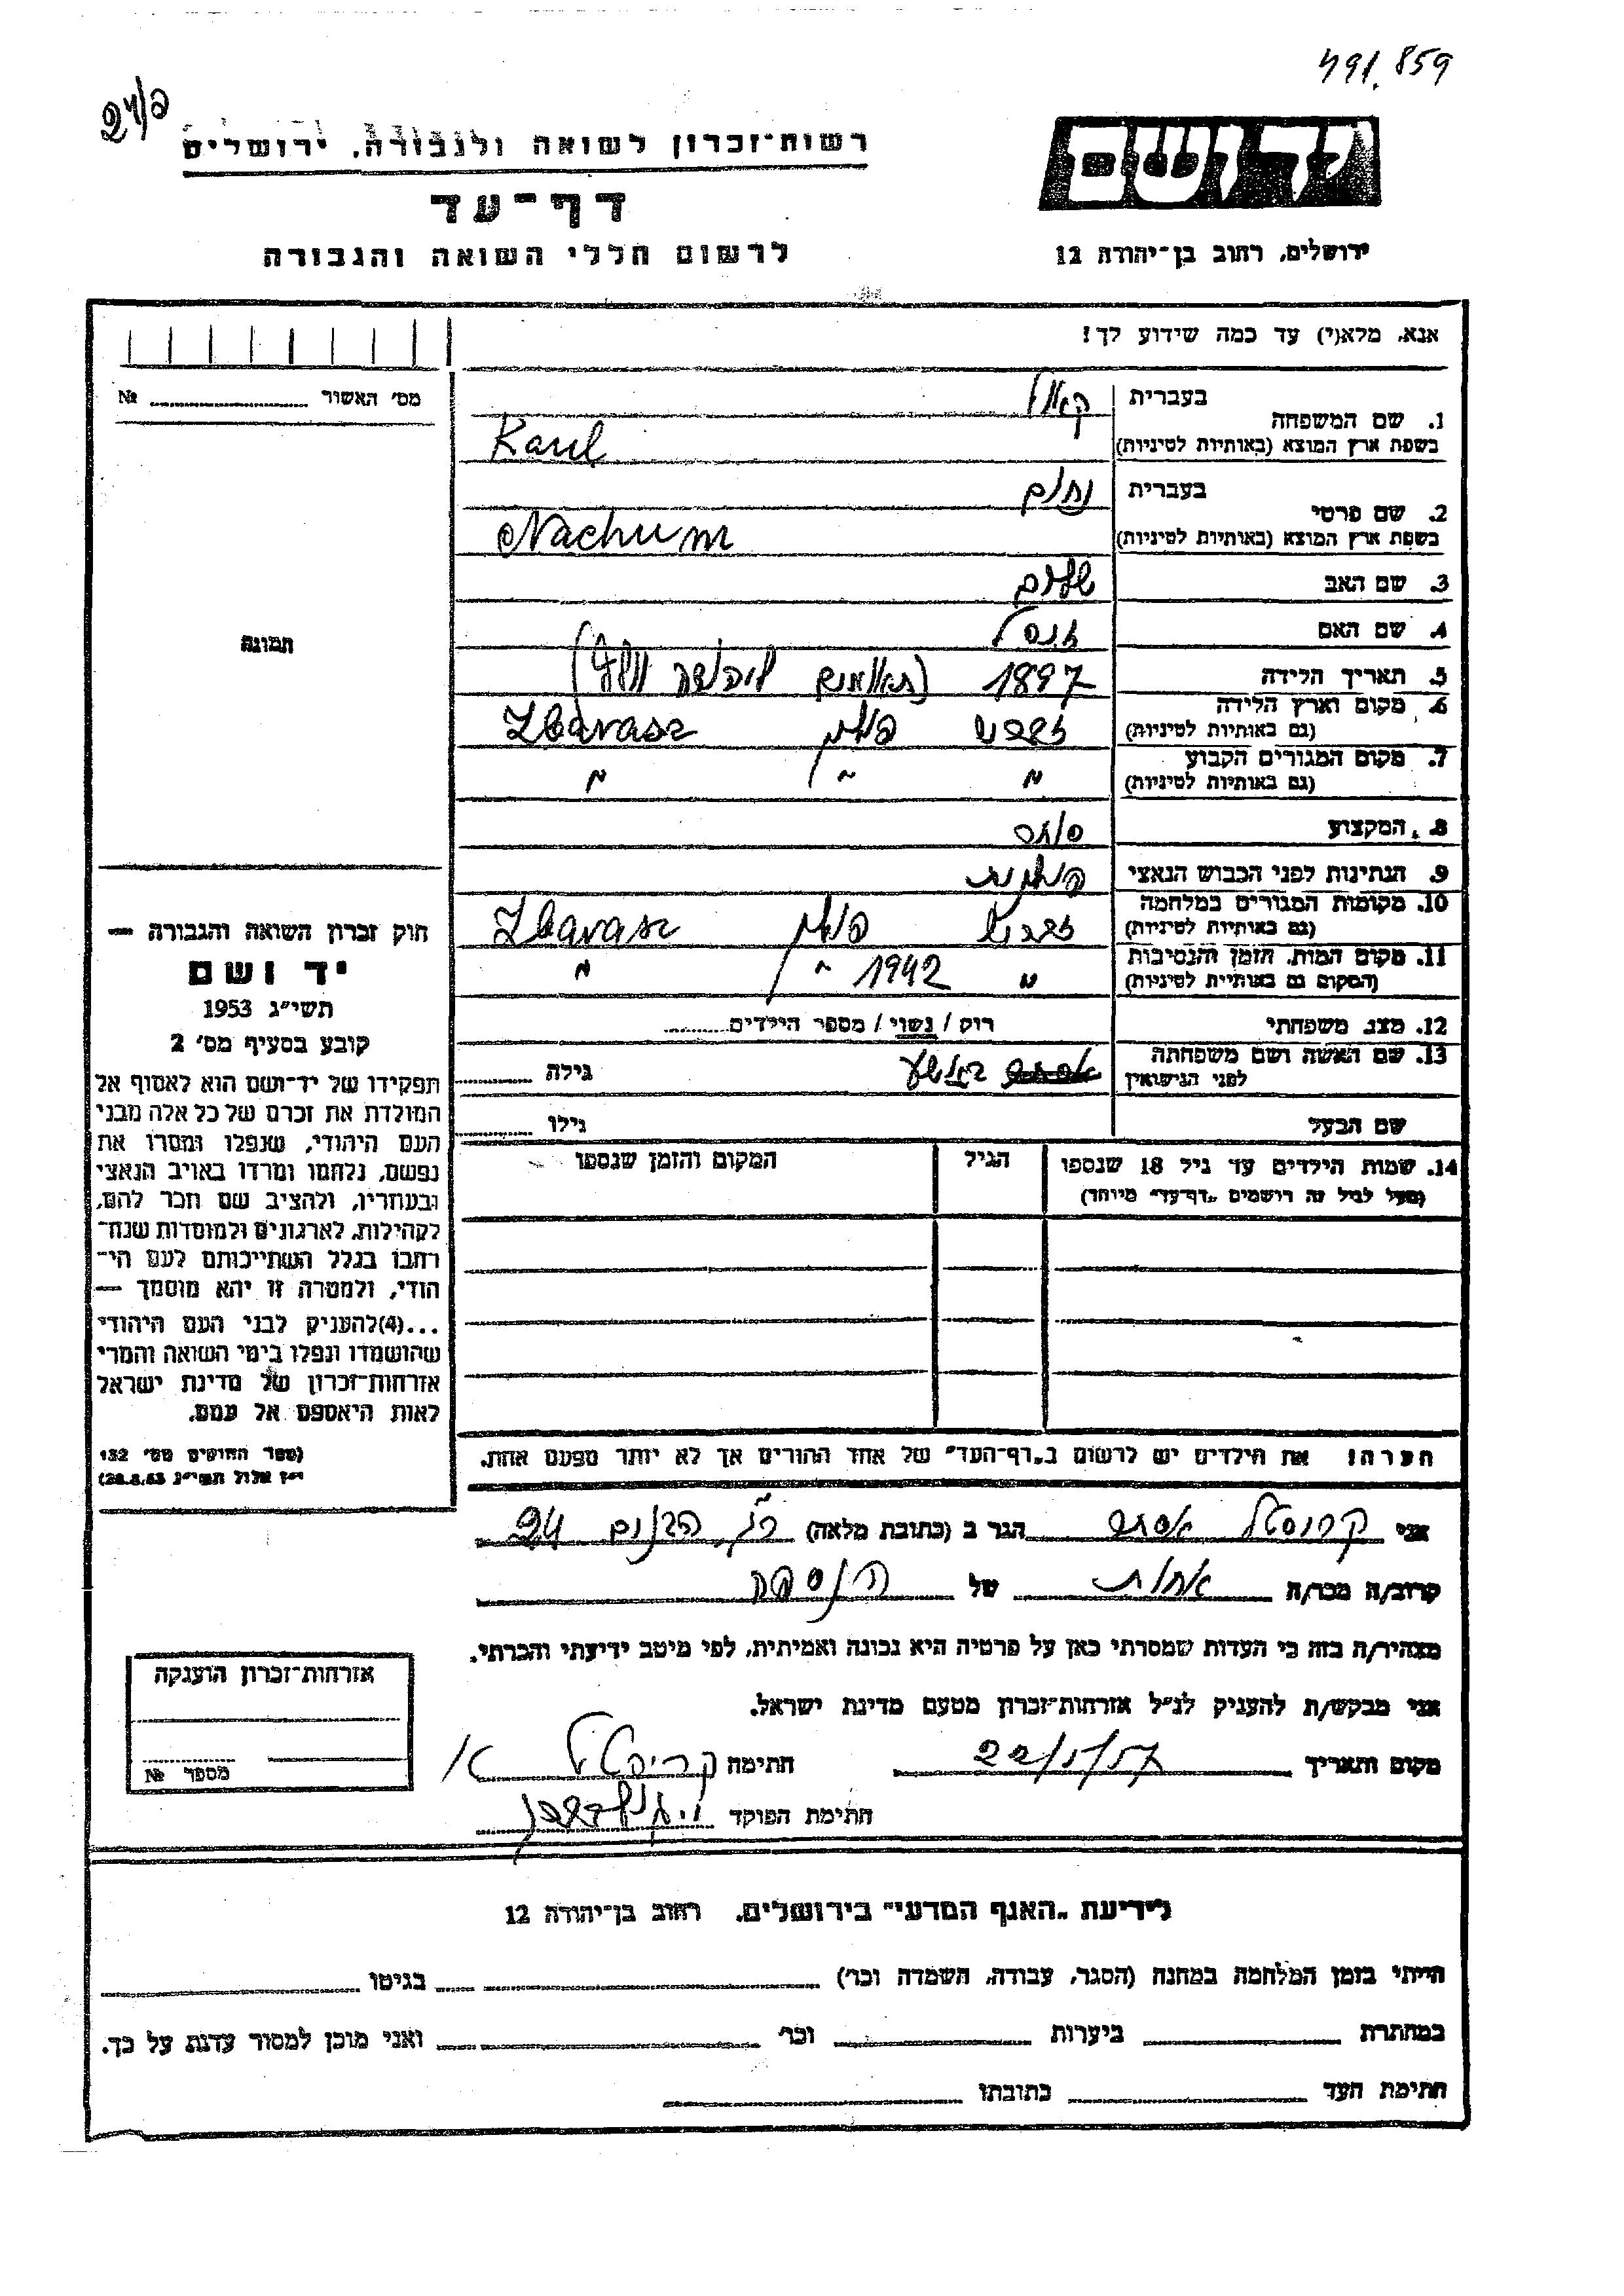 491.859
רשות־זכרון לשואה ולגבורה, ירושלים
יד ושם
דף־עד
לרשום חללי השואה והגבורה
ירושלים, רחוב בן־יהודה 12
אנא, מלא(י) עד כמה שידוע לך!
מס' האשור № 
1. שם המשפחה
בעברית
בשפת ארץ המוצא (באותיות לטיניות) Karel
2. שם פרטי
בעברית נחום
בשפת ארץ המוצא (באותיות לטיניות) Nachum
3. שם האב שלום
4. שם האם
5. תאריך הלידה 1897
6. מקום וארץ הלידה (גם באותיות לטיניות) זברז' פולין Zbarasz
7. מקום המגורים הקבוע (גם באותיות לטיניות) " " "
8. המקצוע סוחר
9. הנתינות לפני הכבוש הנאצי פולנית
10. מקומות המגורים במלחמה (גם באותיות לטיניות) זברז' פולין Zbarasz
11. מקום המות, הזמן והנסיבות (המקום גם באותיות לטיניות) " 1942 " "
12. מצב משפחתי רוק / נשוי / מספר הילדים
13. שם האשה ושם משפחתה לפני הנישואין גילה
שם הבעל גילו
14. שמות הילדים עד גיל 18 שנספו
(מעל לגיל זה רושמים „דף־עד" מיוחד)
הגיל
המקום והזמן שנספו
תמונה
חוק זכרון השואה והגבורה —
יד ושם
תשי"ג 1953
קובע בסעיף מס' 2
תפקידו של יד־ושם הוא לאסוף אל
המולדת את זכרם של כל אלה מבני
העם היהודי, שנפלו ומסרו את
נפשם, נלחמו ומרדו באויב הנאצי
ובעוזריו, ולהציב שם וזכר להם,
לקהילות, לארגונים ולמוסדות שנח־
רבו בגלל השתייכותם לעם הי־
הודי, ולמטרה זו יהא מוסמך —
...(4) להעניק לבני העם היהודי
שהושמדו ונפלו בימי השואה והמרי
אזרחות־זכרון של מדינת ישראל
לאות היאספם אל עמם.
(ספר החוקים מס' 132
י"ז אלול תשי"ג 28.8.53)
הערה! את הילדים יש לרשום ב„דף־העד" של אחד ההורים אך לא יותר מפעם אחת.
אני קריסטל אסתר הגר ב (כתובת מלאה) 24
קרוב/ה מכר/ה אחות של הנספה
מצהיר/ה בזה כי העדות שמסרתי כאן על פרטיה היא נכונה ואמיתית, לפי מיטב ידיעתי והכרתי.
אני מבקש/ת להעניק לנ"ל אזרחות־זכרון מטעם מדינת ישראל.
מקום ותאריך 22/1/57 חתימה קריסטל א
חתימת הפוקד
אזרחות־זכרון הוענקה
מספר №
לידיעת „האגף המדעי" בירושלים, רחוב בן־יהודה 12
הייתי בזמן המלחמה במחנה (הסגר, עבודה, השמדה וכו') בגיטו
במחתרת ביערות וכו' ואני מוכן למסור עדות על כך.
חתימת העד כתובתו